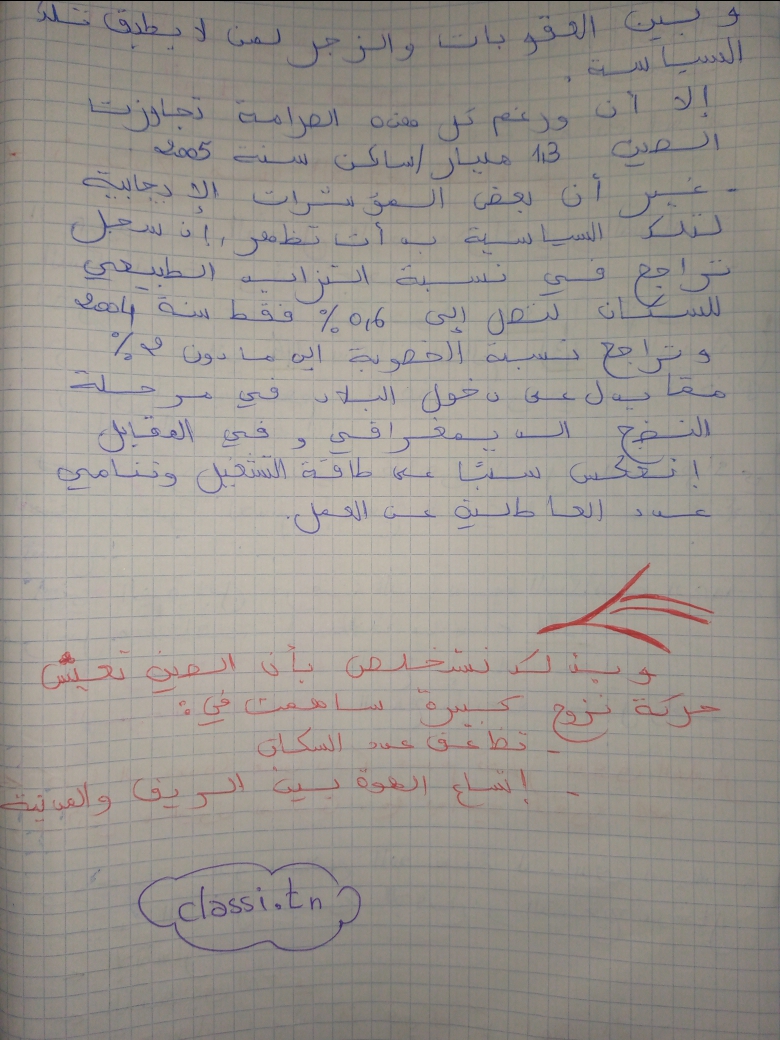 و بين العقوبات والزجر لمن لا يطبق تلك
السياسة.
إلا أن ورغم كل هذه الصرامة تجاوزت
الصين 1,3 مليار/ساكن سنة 2005
- غير أن بعض المؤشرات الإيجابية
لتلك السياسية بدأت تظهر، إذ سجل
تراجع في نسبة التزايد الطبيعي
للسكان لتصل إلى 0,6% فقط سنة 2004
و تراجع نسبة الخصوبة إلى ما دون 2%
مما يدل على دخول البلاد في مرحلة
النضج الديمغرافي و في المقابل
إنعكس سلبًا على طاقة التشغيل وتنامي
عدد العاطلين عن العمل.
و بذلك نستخلص بأن الصين تعيش
حركة نزوح كبيرة ساهمت في:
- تضاعف عدد السكان
- إتساع الهوة بين الريف والمدينة
classi.tn